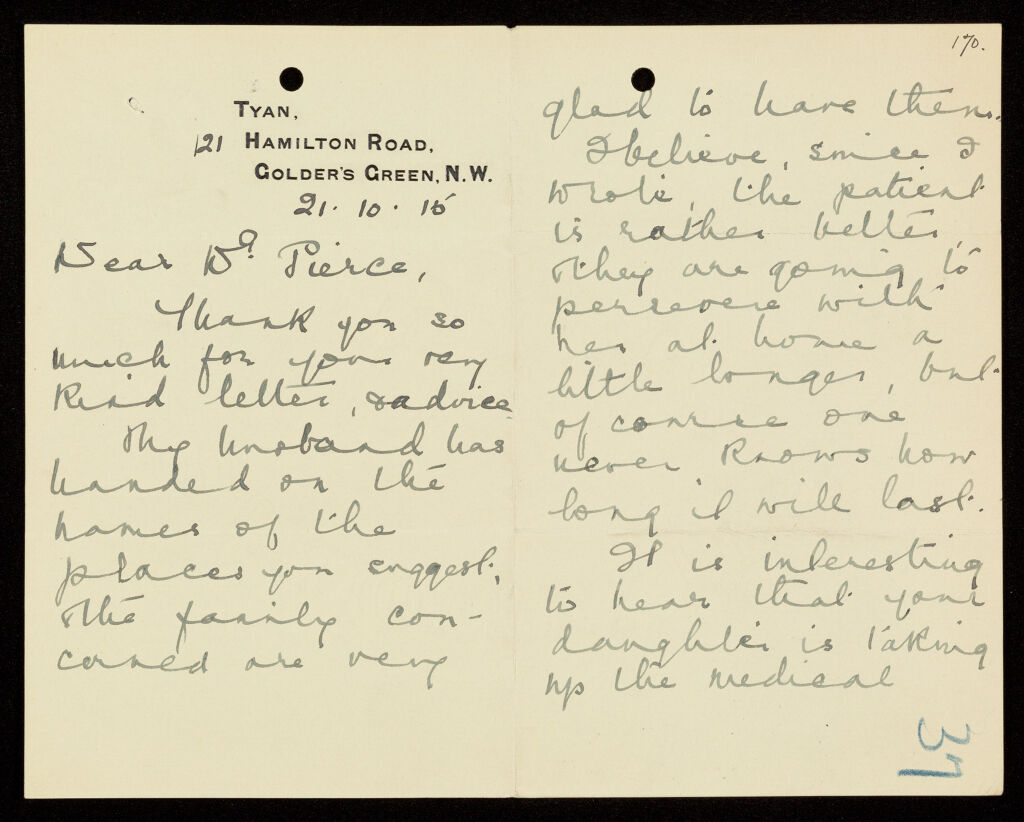 TYAN,
121 HAMILTON ROAD,
GOLDER'S GREEN, N.W.
21. 10. 15
Dear Dr. Pierce,
Thank you so
much for your very
kind letter, & advice
My husband has
handed on the
names of the
places you suggest,
& the family con-
cerned are very
170.
glad to have them.
I believe, since I
wrote, the patient
is rather better,
& they are going to
persevere with
her at home a
little longer, but
of course one
never knows how
long it will last.
It is interesting
to hear that your
daughter is taking
up the medical
37